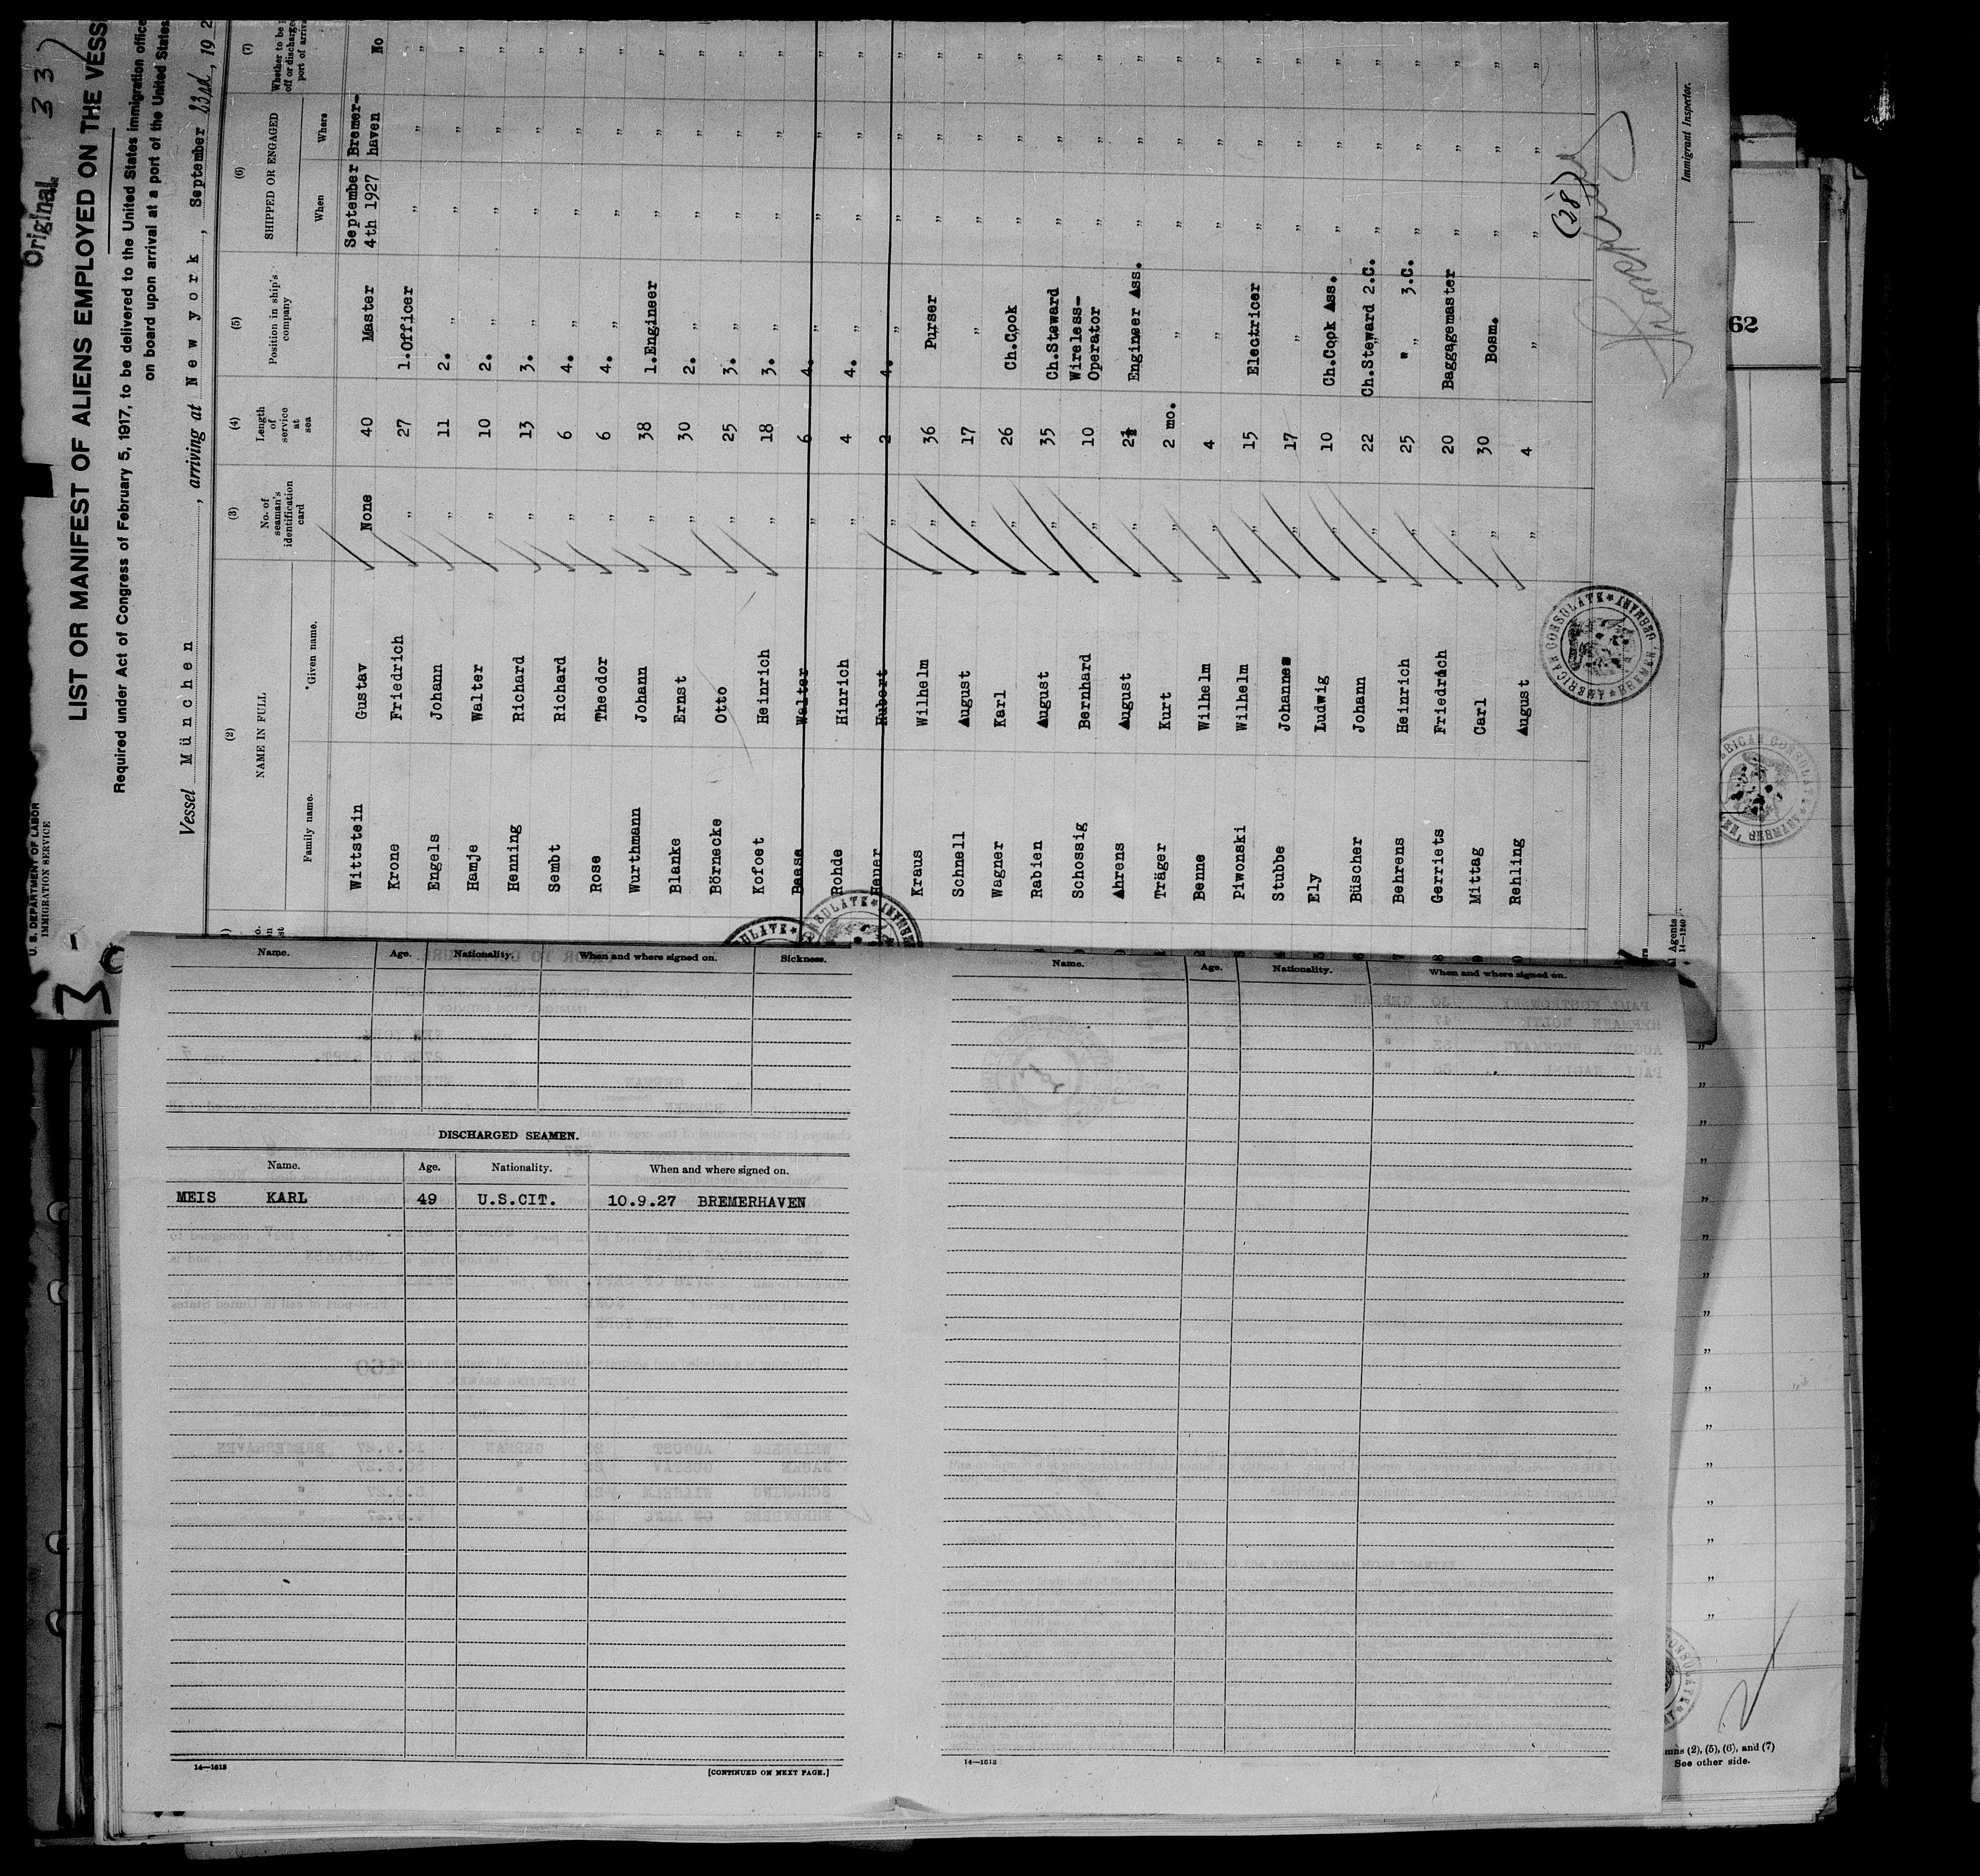 Original 3 3
LIST OR MANIFEST OF ALIENS EMPLOYED ON THE VESS
Required under Act of Congress of February 5, 1917, to be delivered to the United States immigration offic
on board upon arrival at a port of the United States
U. S. DEPARTMENT OF LABOR
IMMIGRATION SERVICE
Vessel München, arriving at New york, September 23rd, 192
(2) (3) (4) (5) (6) (7)
NAME IN FULL
Family name. Given name.
No. of seaman's identification card
Length of service at sea
Position in ship's company
SHIPPED OR ENGAGED
When Where
Whether to be
off or discharge
port of arriv
Wittstein Gustav None 40 Master September 4th 1927 Bremer-haven No
Krone Friedrich " 27 1.Officer " " "
Engels Johann " 11 2. " " " "
Hamje Walter " 10 2. " " " "
Henning Richard " 13 3. " " " "
Sembt Richard " 6 4. " " " "
Rose Theodor " 6 4. " " " "
Wurthmann Johann " 38 1.Engineer " " "
Blanke Ernst " 30 2. " " " "
Börnecke Otto " 25 3. " " " "
Kofoet Heinrich " 18 3. " " " "
Baese Walter " 6 4. " " " "
Rohde Hinrich " 4 4. " " " "
Heuer Hubert " 2 4. " " " "
Kraus Wilhelm " 36 Purser " " "
Schnell August " 17 " " " "
Wagner Karl " 26 Ch.Cook " " "
Rabien August " 35 Ch.Steward " " "
Schossig Bernhard " 10 Wireless-Operator " " "
Ahrens August " 2½ Engineer Ass. " " "
Träger Kurt " 2 mo. " " " "
Benne Wilhelm " 4 " " " "
Piwonski Wilhelm " 15 Electricer " " "
Stubbe Johannes " 17 " " " "
Ely Ludwig " 10 Ch.Cook Ass. " " "
Büscher Johann " 22 Ch.Steward 2.C. " " "
Behrens Heinrich " 25 " " 3.C. " " "
Gerriets Friedrich " 20 Baggagemaster " " "
Mittag Carl " 30 Bosm. " " "
Rehling August " 4 " " " "
(28)
Immigrant Inspector.
AMERICAN CONSULATE
BREMEN, GERMANY
62
Agents
14—1240
Name. Age. Nationality. When and where signed on. Sickness.
DISCHARGED SEAMEN.
Name. Age. Nationality. When and where signed on.
MEIS KARL 49 U.S.CIT. 10.9.27 BREMERHAVEN
14—1613
[CONTINUED ON NEXT PAGE.]
Name. Age. Nationality. When and where signed on.
14—1613
mns (2), (5), (6), and (7)
See other side.